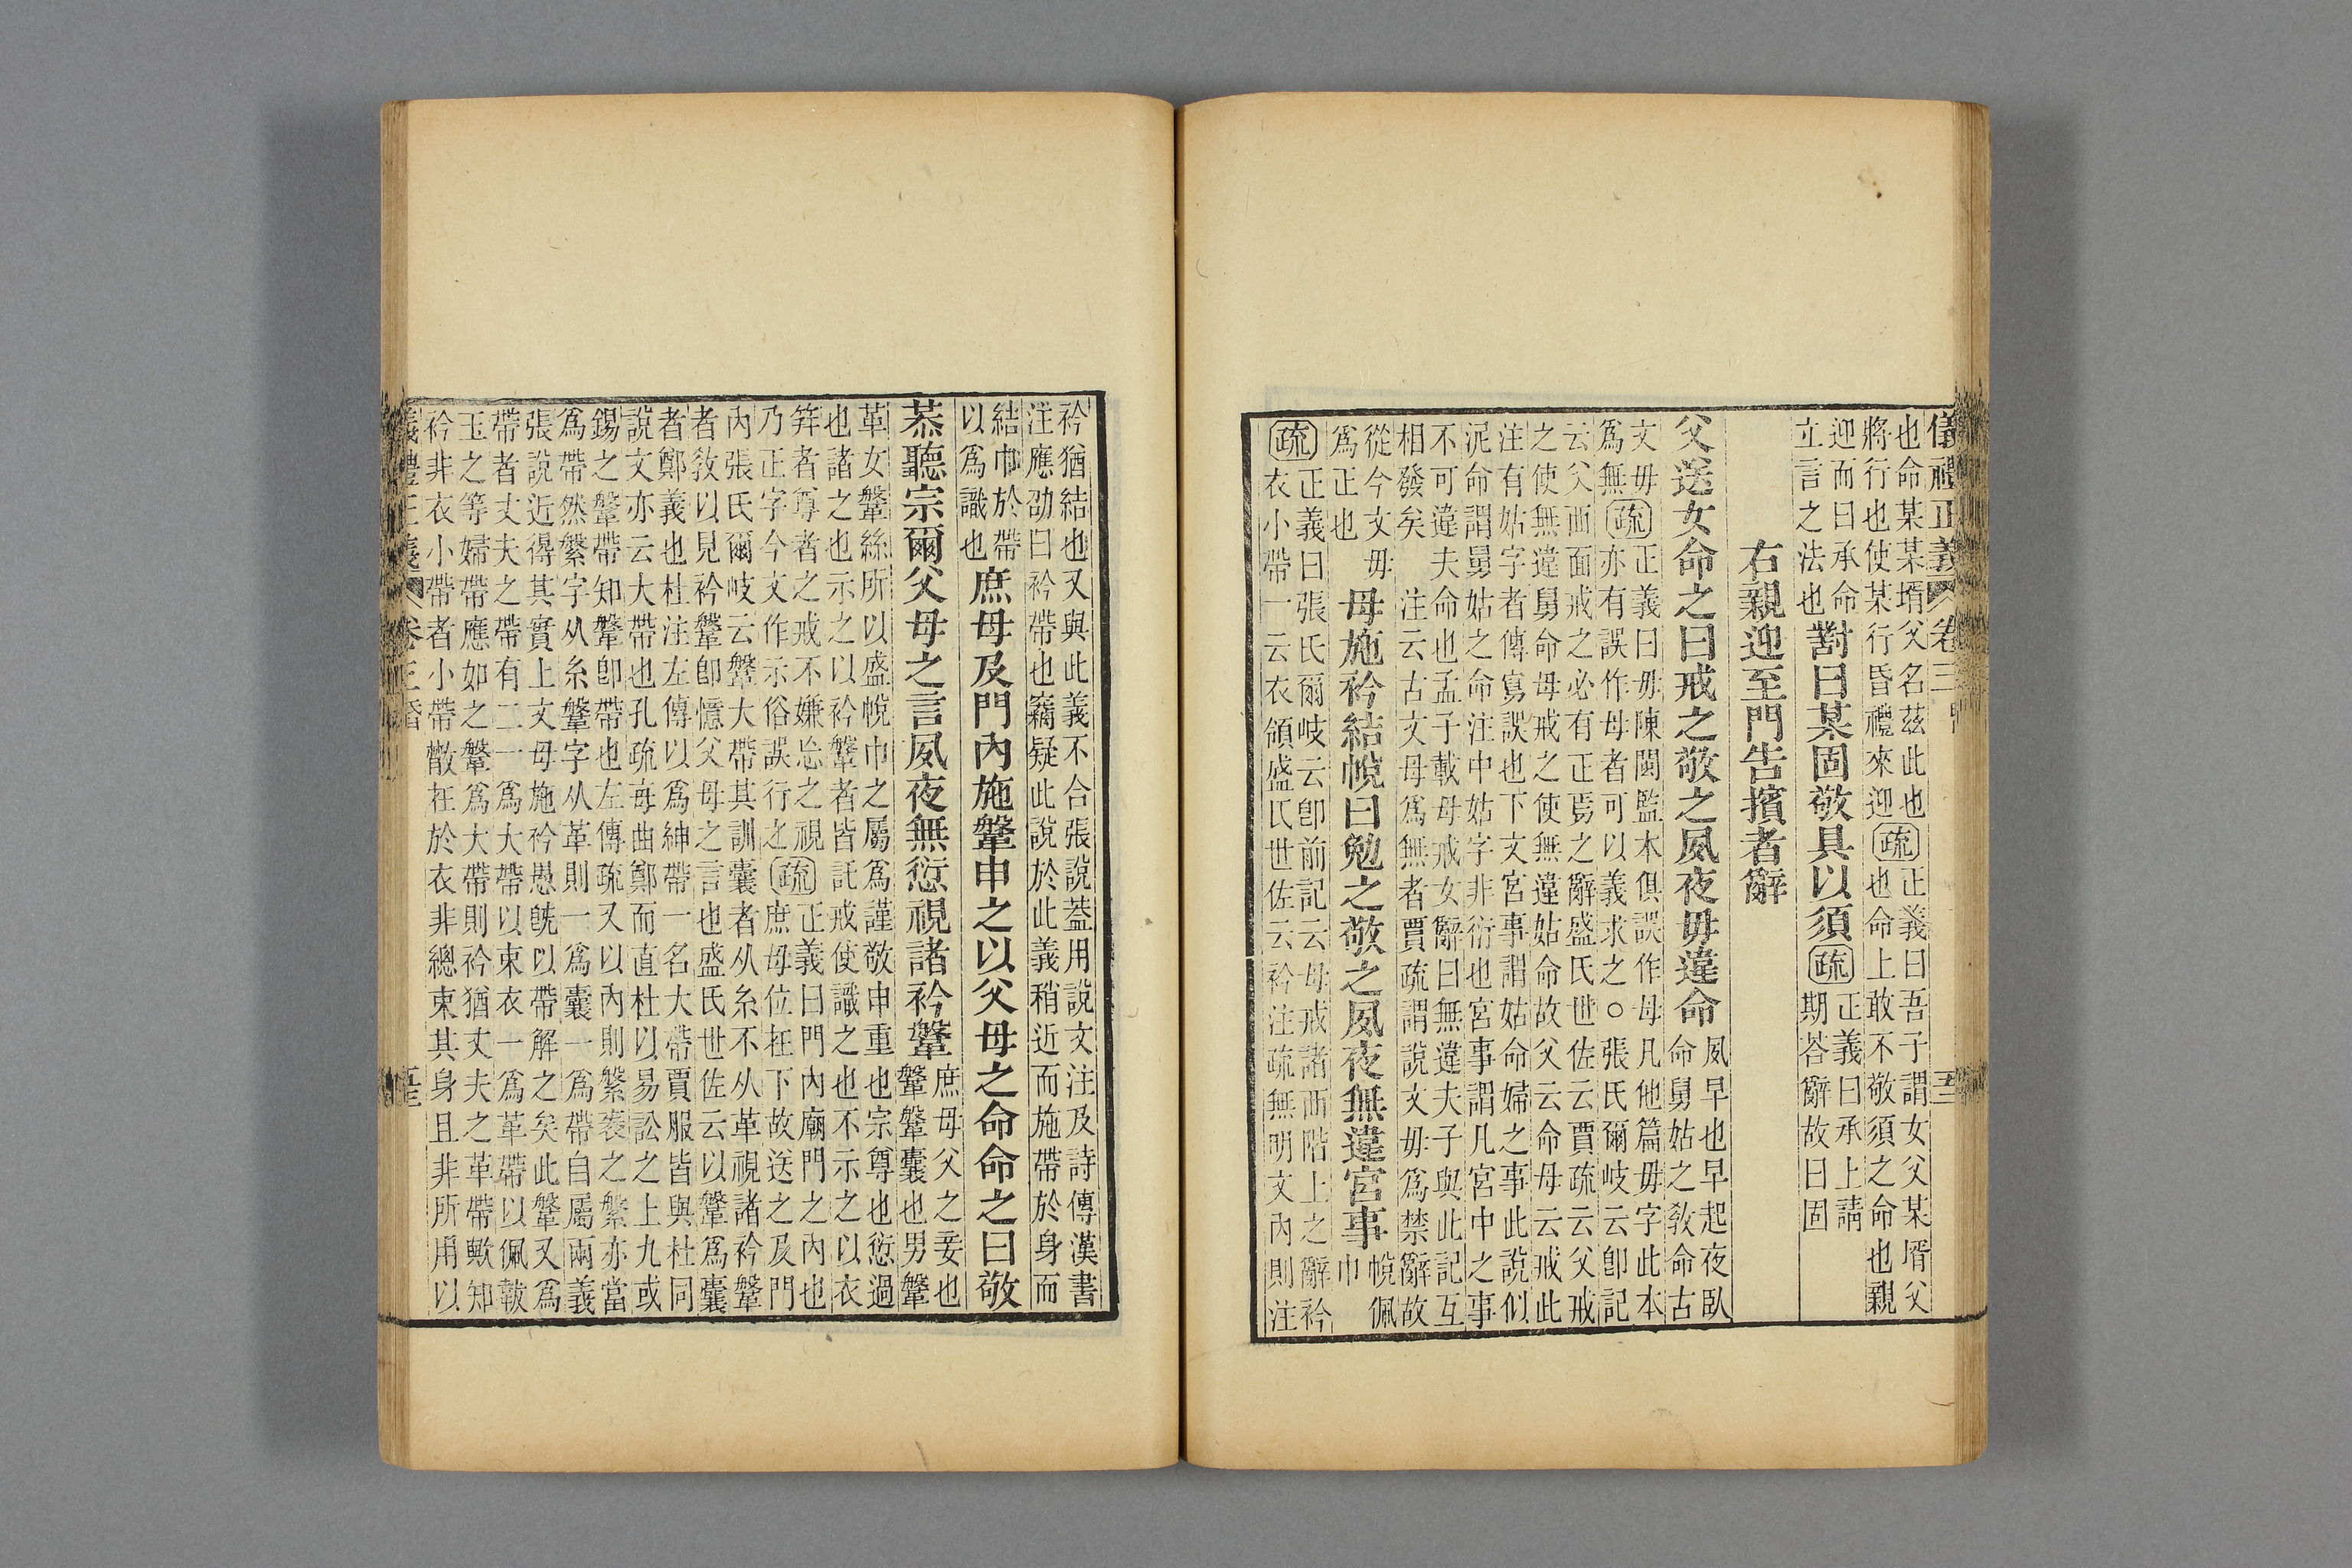 儀禮正義 卷三
也命某某壻父名茲此也疏正義曰吾子謂女父某壻父
將行也使某行昏禮來迎疏也命上敢不敬須之命也親
迎而曰承命
立言之法也
對曰某固敬具以須疏
正義曰承上請
期荅辭故曰固
右親迎至門告擯者辭
父送女命之曰戒之敬之夙夜毋違命
夙早也早起夜臥
命舅姑之敎命古
文毋
爲無
疏
正義曰毋陳閩監本俱誤作母凡他篇毋字此本
亦有誤作母者可以義求之○張氏爾岐云卽記
云父西面戒之必有正焉之辭盛氏世佐云賈疏云父戒
之使無違舅命母戒之使無違姑命故父云命母云戒此
注有姑字者傳寫誤也下文宮事謂姑命婦之事此說似
泥命謂舅姑之命注中姑字非衍也宮事謂凡宮中之事
不可違夫命也孟子載母戒女辭曰無違夫子與此記互
相發矣 注云古文毋爲無者賈疏謂說文毋爲禁辭故
從今文毋
爲正也
母施衿結帨曰勉之敬之夙夜無違宮事
帨佩
巾
疏
正義曰張氏爾岐云卽前記云母戒諸西階上之辭衿
衣小帶一云衣領盛氏世佐云衿注疏無明文內則注
衿猶結也又與此義不合張說葢用說文注及詩傳漢書
注應劭曰衿帶也竊疑此說於此義稍近而施帶於身而
結巾於帶
以爲識也
庶母及門內施鞶申之以父母之命命之曰敬
恭聽宗爾父母之言夙夜無愆視諸衿鞶
庶母父之妾也
鞶鞶囊也男鞶
革女鞶絲所以盛帨巾之屬爲謹敬申重也宗尊也愆過
也諸之也示之以衿鞶者皆託戒使識之也不示之以衣
笄者尊者之戒不嫌忘之視
乃正字今文作示俗誤行之
疏
正義曰門內廟門之內也
庶母位在下故送之及門
內張氏爾岐云鞶大帶其訓囊者从糸不从革視諸衿鞶
者敎以見衿鞶卽憶父母之言也盛氏世佐云以鞶爲囊
者鄭義也杜注左傳以爲紳帶一名大帶賈服皆與杜同
說文亦云大帶也孔疏毎曲鄭而直杜以易訟之上九或
錫之鞶帶知鞶卽帶也左傳疏又以內則鞶袠之鞶亦當
爲帶然鞶字从糸鞶字从革則一爲囊一爲帶自屬兩義
張說近得其實上文母施衿愚旣以帶解之矣此鞶又爲
帶者丈夫之帶有二一爲大帶以束衣一爲革帶以佩韍
玉之等婦帶應如之鞶爲大帶則衿猶丈夫之革帶歟知
衿非衣小帶者小帶散在於衣非總束其身且非所用以
義禮正義 卷三 昏